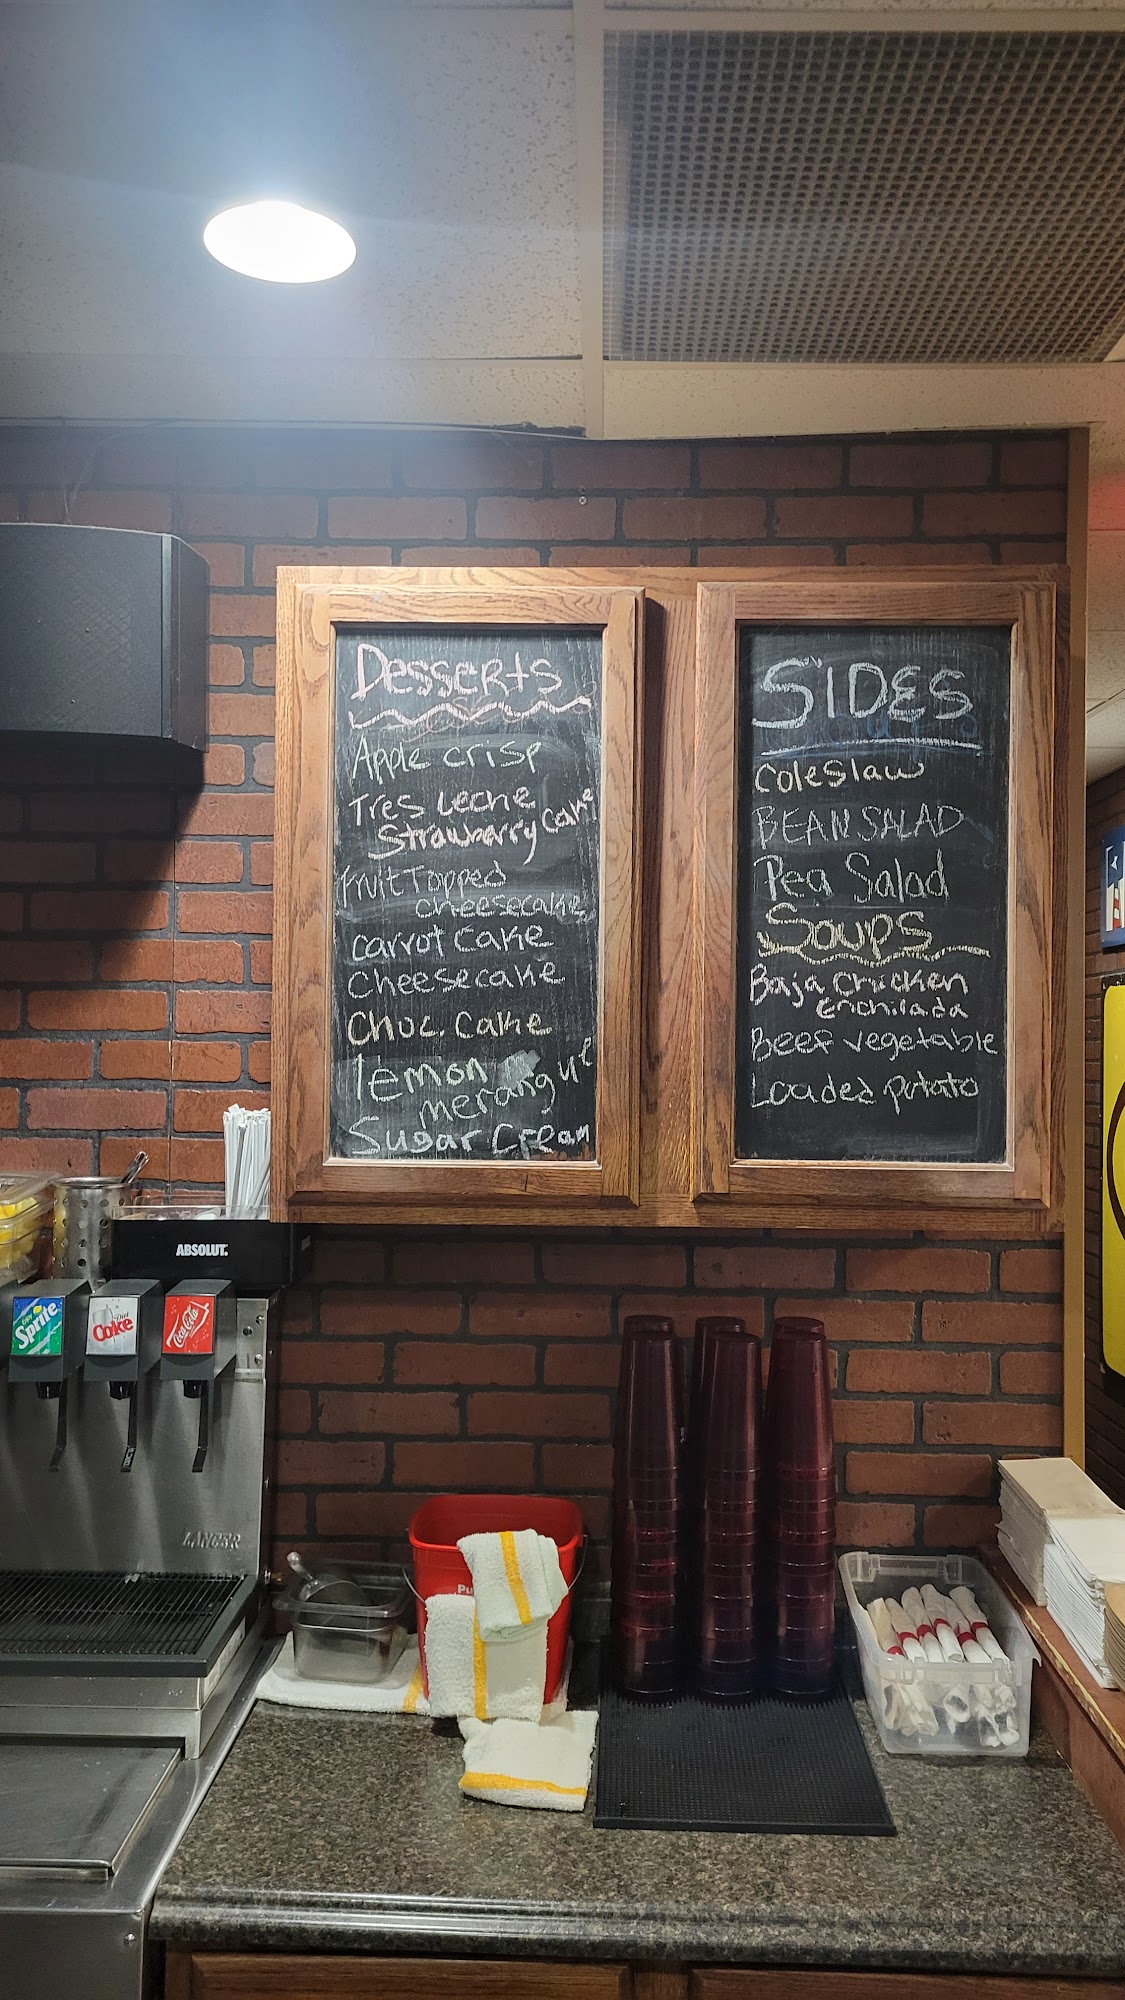 Desserts
Apple crisp
Tres Leche
Strawberry Cake
Fruit Topped
cheesecake
carrot cake
Cheesecake
Choc. Cake
lemon
merangue
Sugar Cream
SIDES
coleslaw
BEAN SALAD
Pea Salad
Soups
Baja Chicken
Enchilada
Beef vegetable
Loaded potato
ABSOLUT.
Enjoy
Sprite
Diet
Coke
Coca-Cola
LANCER